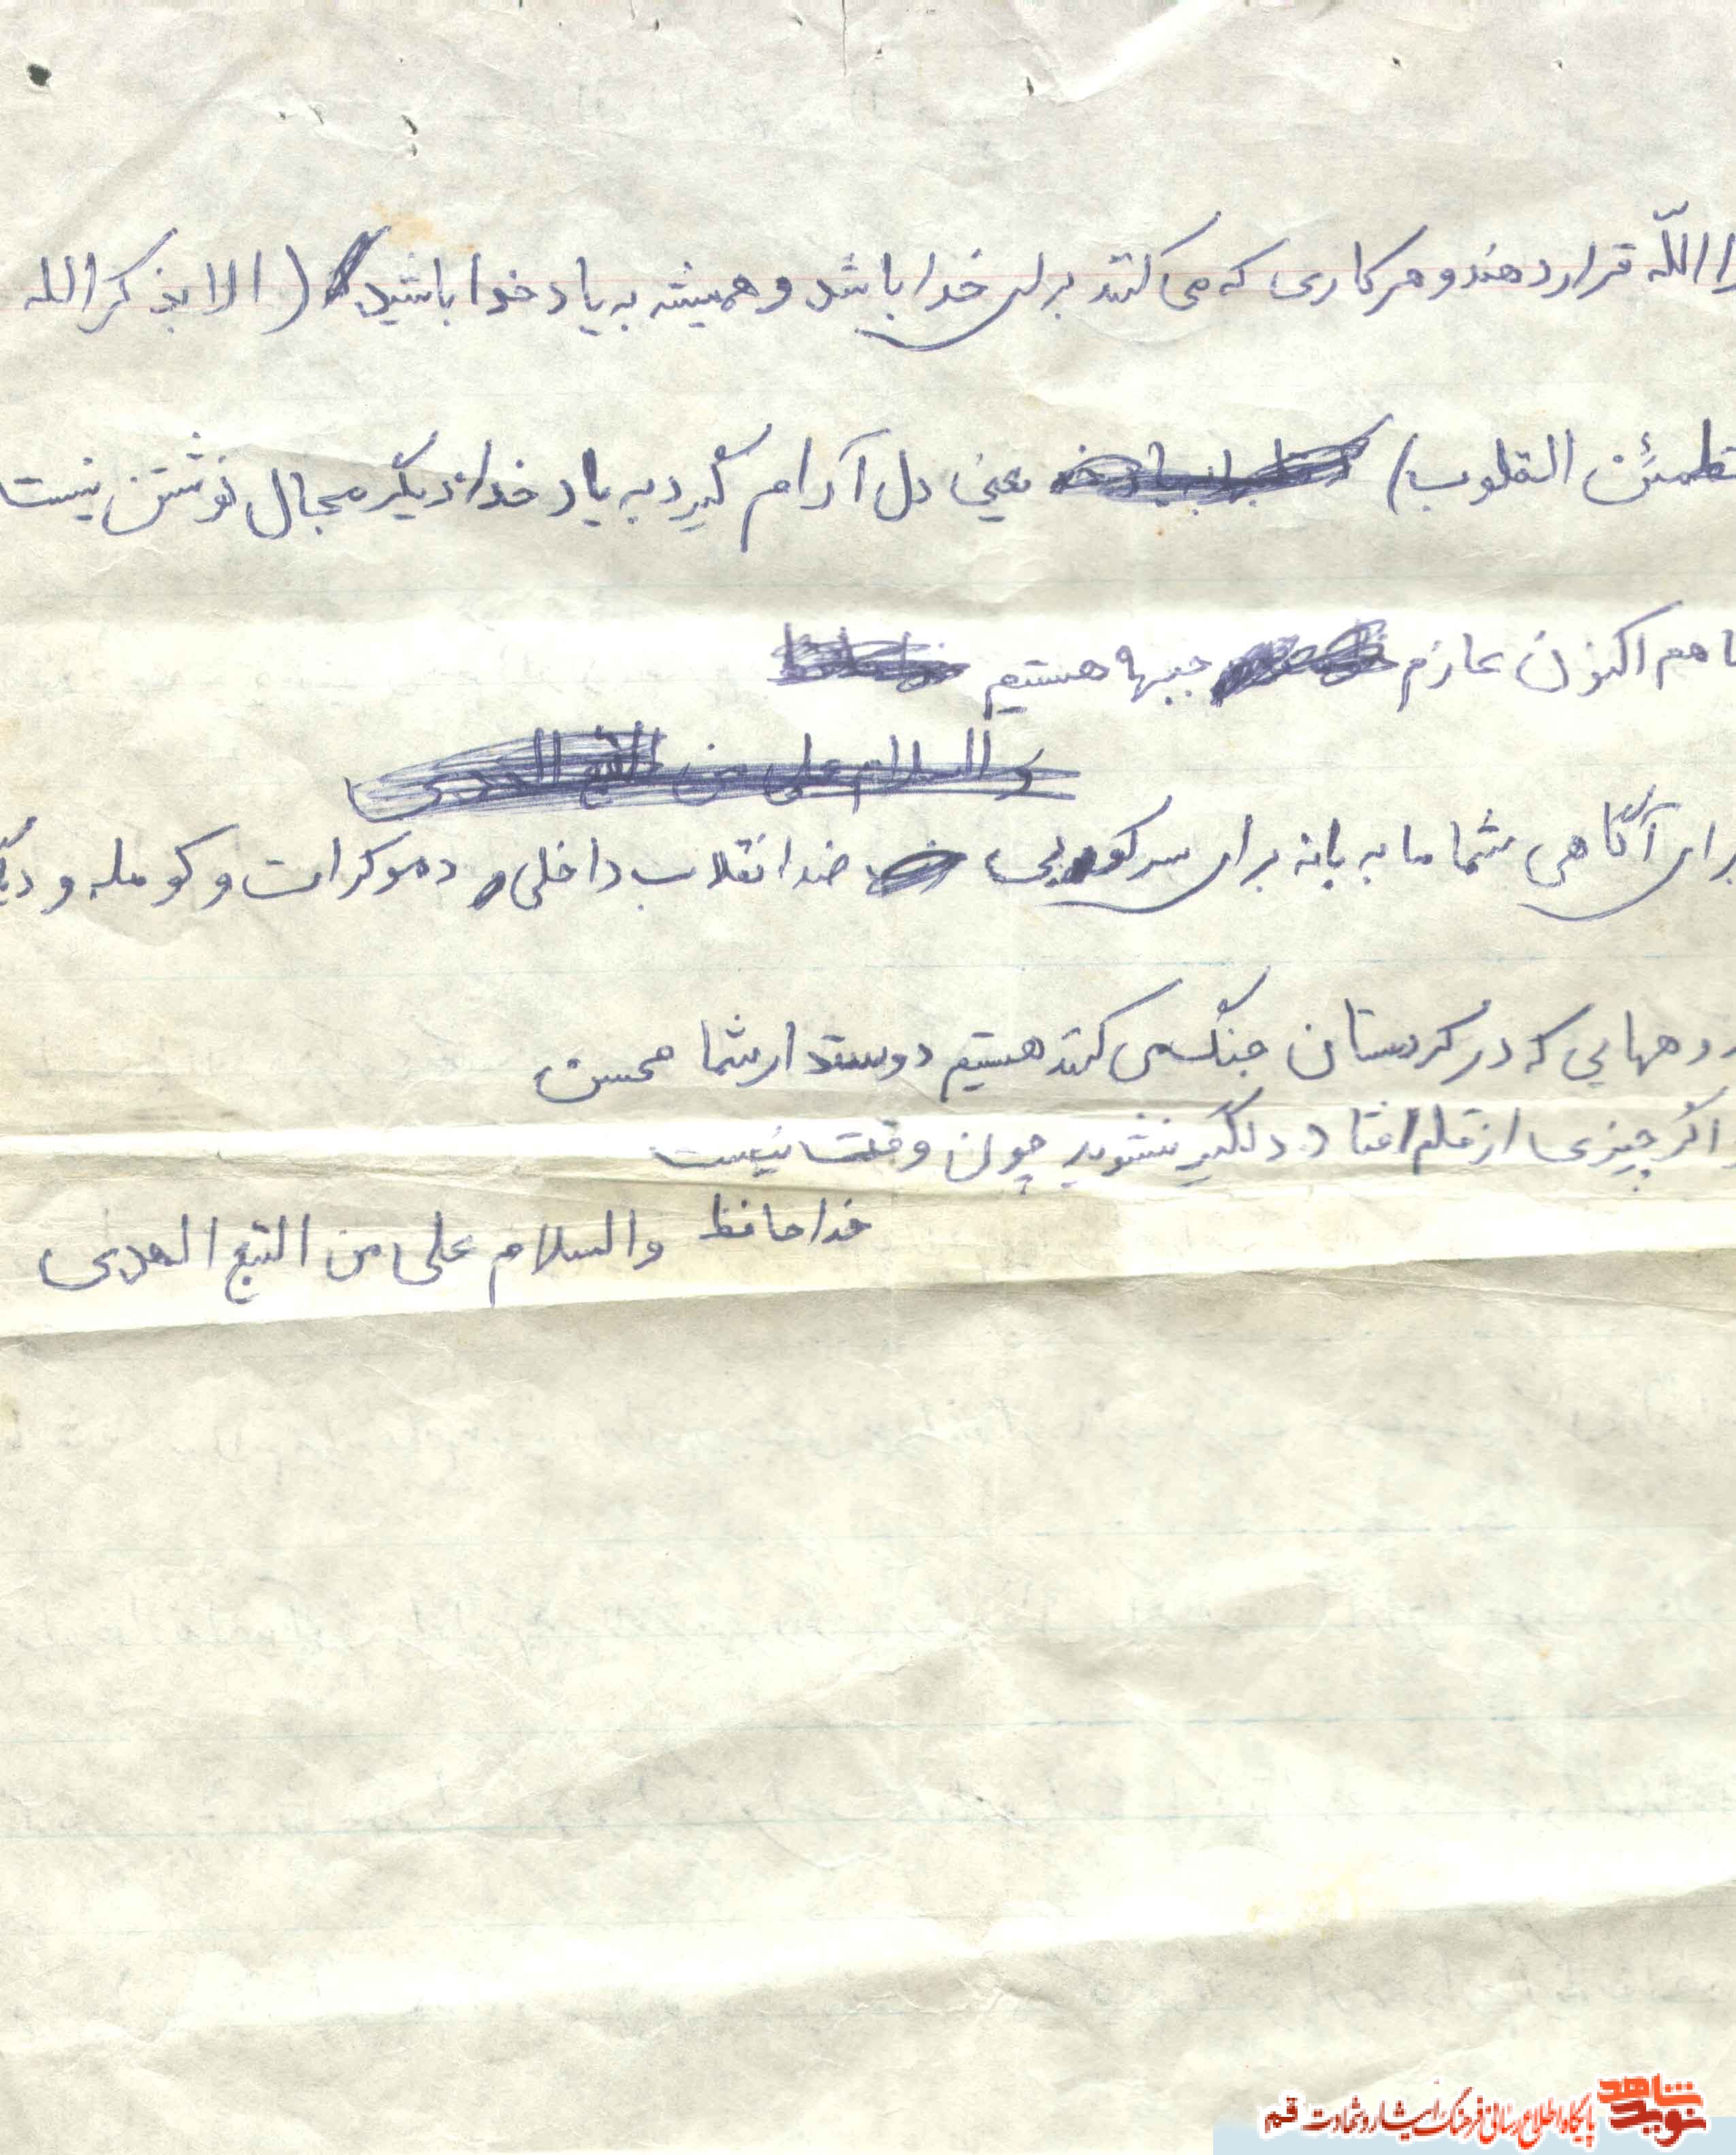 را اللّه قرار دهند و هر کاری که می کنند برای خدا باشد و همیشه به یاد خدا باشید (الا بذکر الله
تطمئن القلوب) یعنی دل آرام گیرد به یاد خدا دیگر مجال نوشتن نیست
ما هم اکنون عازم جبهه هستیم
والسلام علی من التبع الهدی
برای آگاهی شما ما به بانه برای سرکوبی ضد انقلاب داخلی دموکرات و کومله و
هایی که در کردستان جنگ می کنند هستیم دوستدار شما محسن
اگر چیزی از قلم افتاد دلگیر نشوید چون وقت نیست
خداحافظ والسلام علی من التبع الهدی
نوید شاهد
پایگاه اطلاع رسانی فرهنگ ایثار و شهادت قم